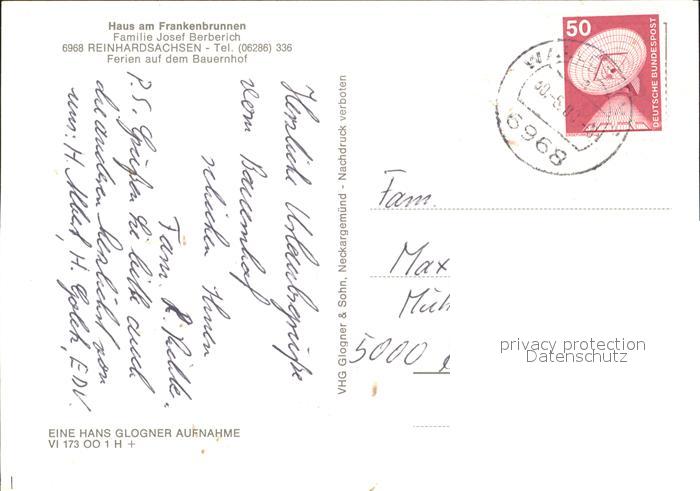 Haus am Frankenbrunnen
Familie Josef Berberich
6968 REINHARDSACHSEN - Tel. (06286) 336
Ferien auf dem Bauernhof
Herzliche Urlaubsgrüße
vom Bauernhof
schicken Ihnen
Fam.
P.S. Grüßen Sie bitte auch
die anderen herzlichst von
uns: H. Albert, H. EDV.
EINE HANS GLOGNER AUFNAHME
VI 173 OO 1 H +
VHG Glogner & Sohn, Neckargemünd - Nachdruck verboten
50
DEUTSCHE BUNDESPOST
6968
Fam.
Max
5000
privacy protection
Datenschutz